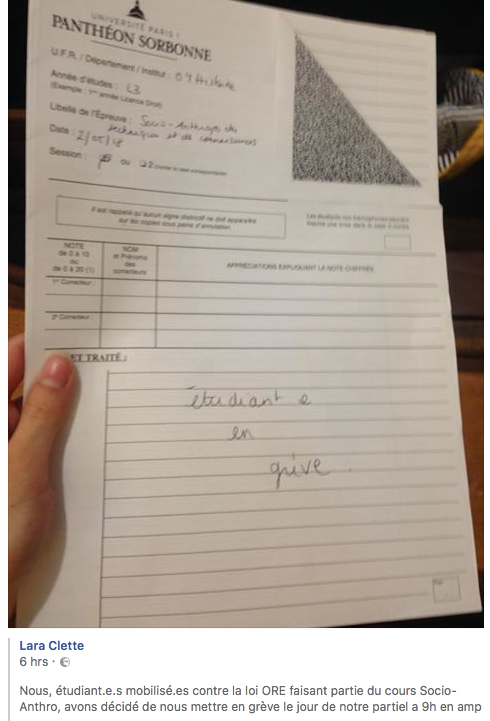 UNIVERSITÉ PARIS I
PANTHÉON SORBONNE
U.F.R. / Département / Institut : 09 Histoire
Année d'études : L3
(Exemple : 1ère année Licence Droit)
Libellé de l'Épreuve : Socio-Anthropo des
techniques et des connaissances
Date : 2/05/18
Session : ou 22 (cocher la case correspondante)
Il est rappelé qu'aucun signe distinctif ne doit apparaître
sur les copies sous peine d'annulation.
Les étudiants non francophones peuvent
inscrire une croix dans la case ci-contre
NOTE
de 0 à 10
ou
de 0 à 20 (1)
NOM
et Prénoms
des
correcteurs
APPRÉCIATIONS EXPLIQUANT LA NOTE CHIFFRÉE
1er Correcteur :
2e Correcteur :
ET TRAITÉ :
étudiant e
en
grève.
Lara Clette
6 hrs ·
Nous, étudiant.e.s mobilisé.es contre la loi ORE faisant partie du cours Socio-
Anthro, avons décidé de nous mettre en grève le jour de notre partiel a 9h en amp